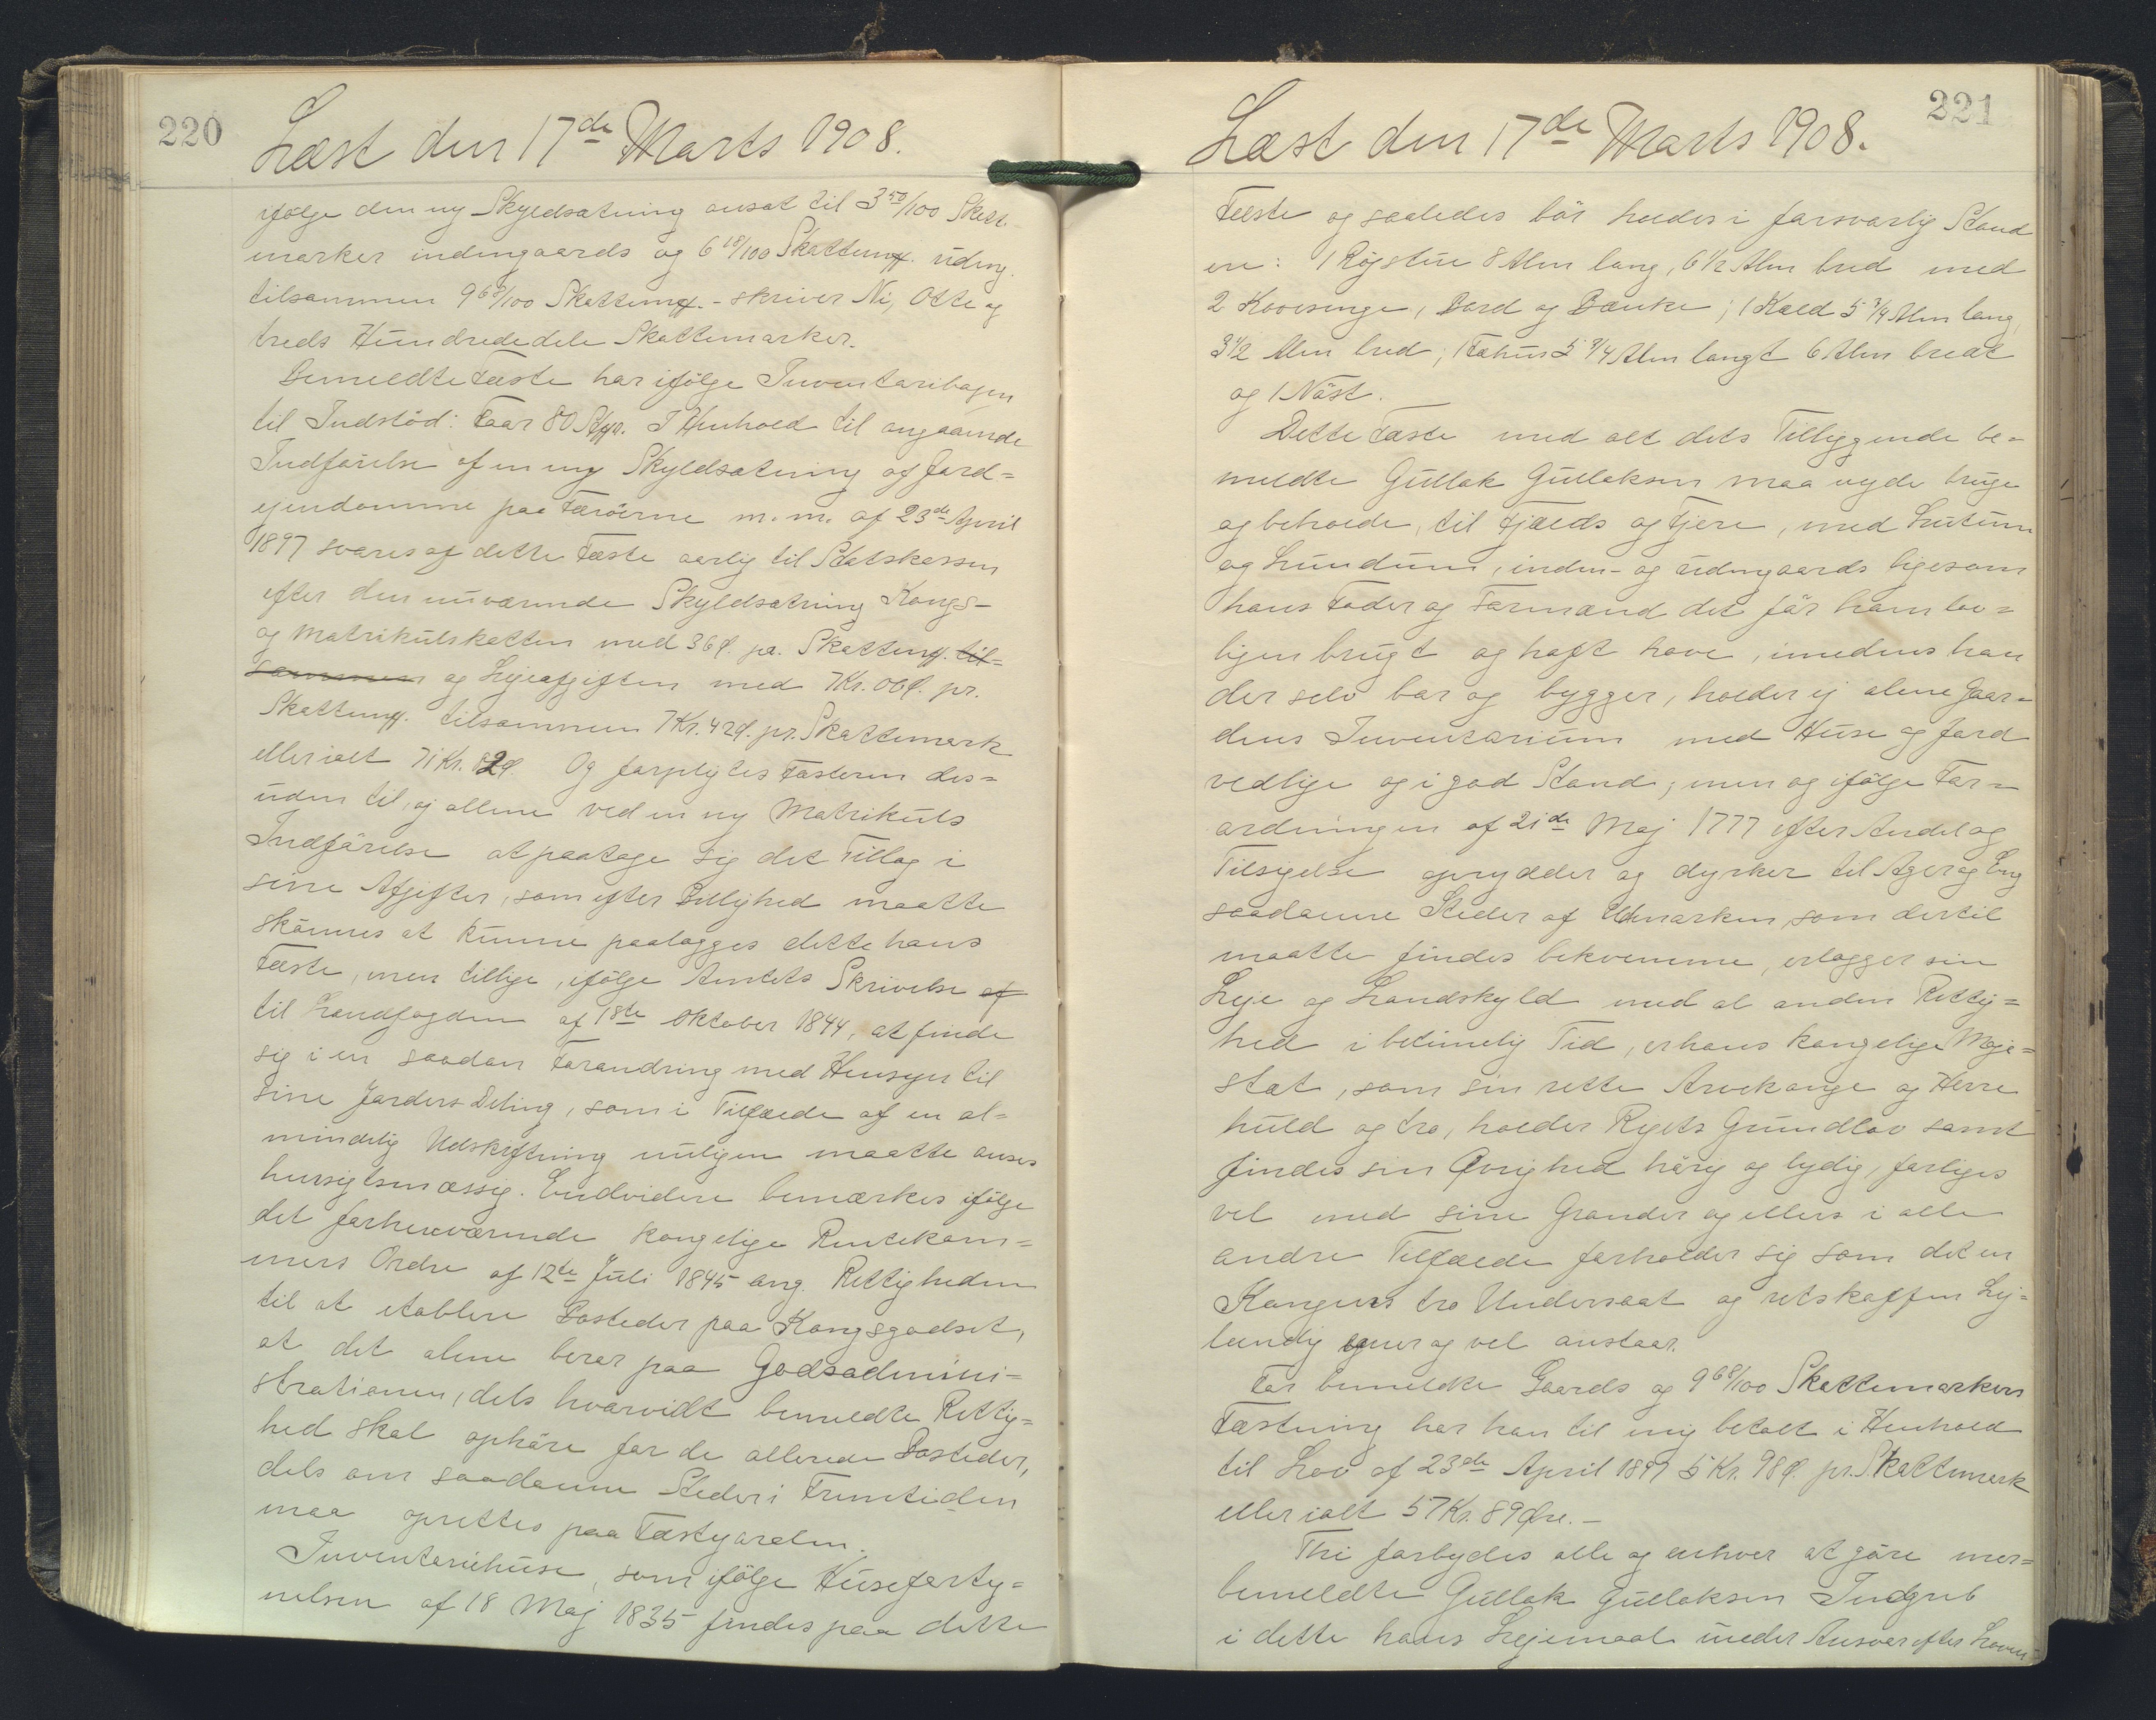 220
Læst den 17de Marts 1908.
ifølge den ny Skyldsætning ansat til 3 50/100 Skatte-
marker indengaards og 6 18/100 Skattemk. udeng.
tilsammen 9 68/100 Skattemk. - skriver Ni, Otte og
treds Hundrededele Skattemarker.
Bemeldte Fæste har ifølge Inventaribogen
til Indstöd: Faar 80 Stkr. I Henhold til angaaende
Indførelse af en ny Skyldsætning af Jord=
ejendomme paa Færöerne m. m. af 23de April
1897 svares af dette Fæste aarlig til Statskassen
efter den nuværende Skyldsætning Kongs-
og Matrikulskatten med 36 Ø. pr. Skattemk. til=
sammen og Lejeafgiften med 7 Kr. 06 Ø. pr.
Skattemk. tilsammen 7 Kr. 42 Ø. pr. Skattemark
eller ialt 71 Kr. 82 Ø. Og forpligtes Fæsteren des=
uden til, ej allene ved en ny Matrikuls
Indførelse at paatage sig det Tillæg i
sine Afgifter, som efter Billighed maatte
skönnes at kunne paalægges dette hans
Fæste, men tillige, ifølge Amtets Skrivelse af
til Landfogden af 18te Oktober 1844, at finde
sig i en saadan Forandring med Hensyn til
sine Jorders Deling, som i Tilfælde af en al=
mindelig Udskiftning muligen maatte anses
hensigtsmæssig. Endvidere bemærkes ifølge
det forhenværende kongelige Rentekam=
mers Ordre af 12te Juli 1845 ang. Rettigheden
til at etablere Bosteder paa Kongsgodset,
at det alene beror paa Godsadmini=
strationen, dels hvorvidt bemeldte Rettig=
hed skal ophöre for de allerede Bosteder,
dels om saadanne Steder i Fremtiden
maa oprettes paa Fæstejorden.
Inventariehuse, som ifølge Huseforteg=
nelsen af 18 Maj 1835 findes paa dette
221
Læst den 17de Marts 1908.
Fæste og saaledes bör holdes i forsvarlig Stand
ere: 1 Røgstue 8 Alen lang, 6 1/2 Alen bred med
2 Kovesenge, Bord og Bænke; 1 Kold 5 3/4 Alen lang,
3 1/2 Alen bred; 1 Fæhus 5 3/4 Alen langt 6 Alen bredt
og 1 Nöst.
Dette Fæste med alt dets Tilliggende be=
meldte Gullak Gullaksen maa nyde bruge
og beholde, til Fjælds og Fjere, med Lutum
og Lundum, inden- og udengaards ligesom
hans Fader og Formænd det för ham lov=
ligen brugt og haft have, imedens han
der selv bor og bygger, holder ej alene Gaar=
dens Inventarium med Huse og Jord
vedlige og i god Stand, men og ifølge For=
ordningen af 21de Maj 1777 efter Andel og
Tilsigelse oprydder og dyrker til Ager og Eng
saadanne Steder af Udmarken, som dertil
maatte findes bekvemme, erlægger sin
Leje og Landskyld med al anden Rettig=
hed i betimelig Tid, er hans kongelige Maje=
stæt, som sin rette Arvekonge og Herre
huld og tro, holder Rigets Grundlov samt
findes sin Øvrighed hörig og lydig, forliges
vel med sine Grander og ellers i alle
andre Tilfælde forholder sig som det en
Kongens tro Undersaat og retskaffen Lej=
lænding egner og vel anstaar.
For bemeldte Gaards og 9 68/100 Skattemarkers
Fæstning har han til mig betalt i Henhold
til Lov af 23de April 1897 5 Kr. 98 Ø. pr. Skattemark
eller ialt 57 Kr. 89 Øre. -
Thi forbydes alle og enhver at göre mer=
bemeldte Gullak Gullaksen Indgreb
i dette hans Lejemaal under Ansvar efter Loven